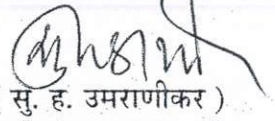 सु. ह. उमराणीकर )